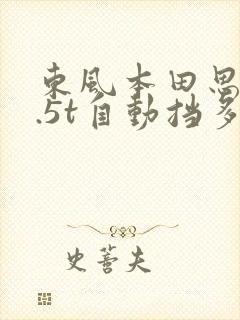 東風本田思
.5t自動挡多
史蓍夫